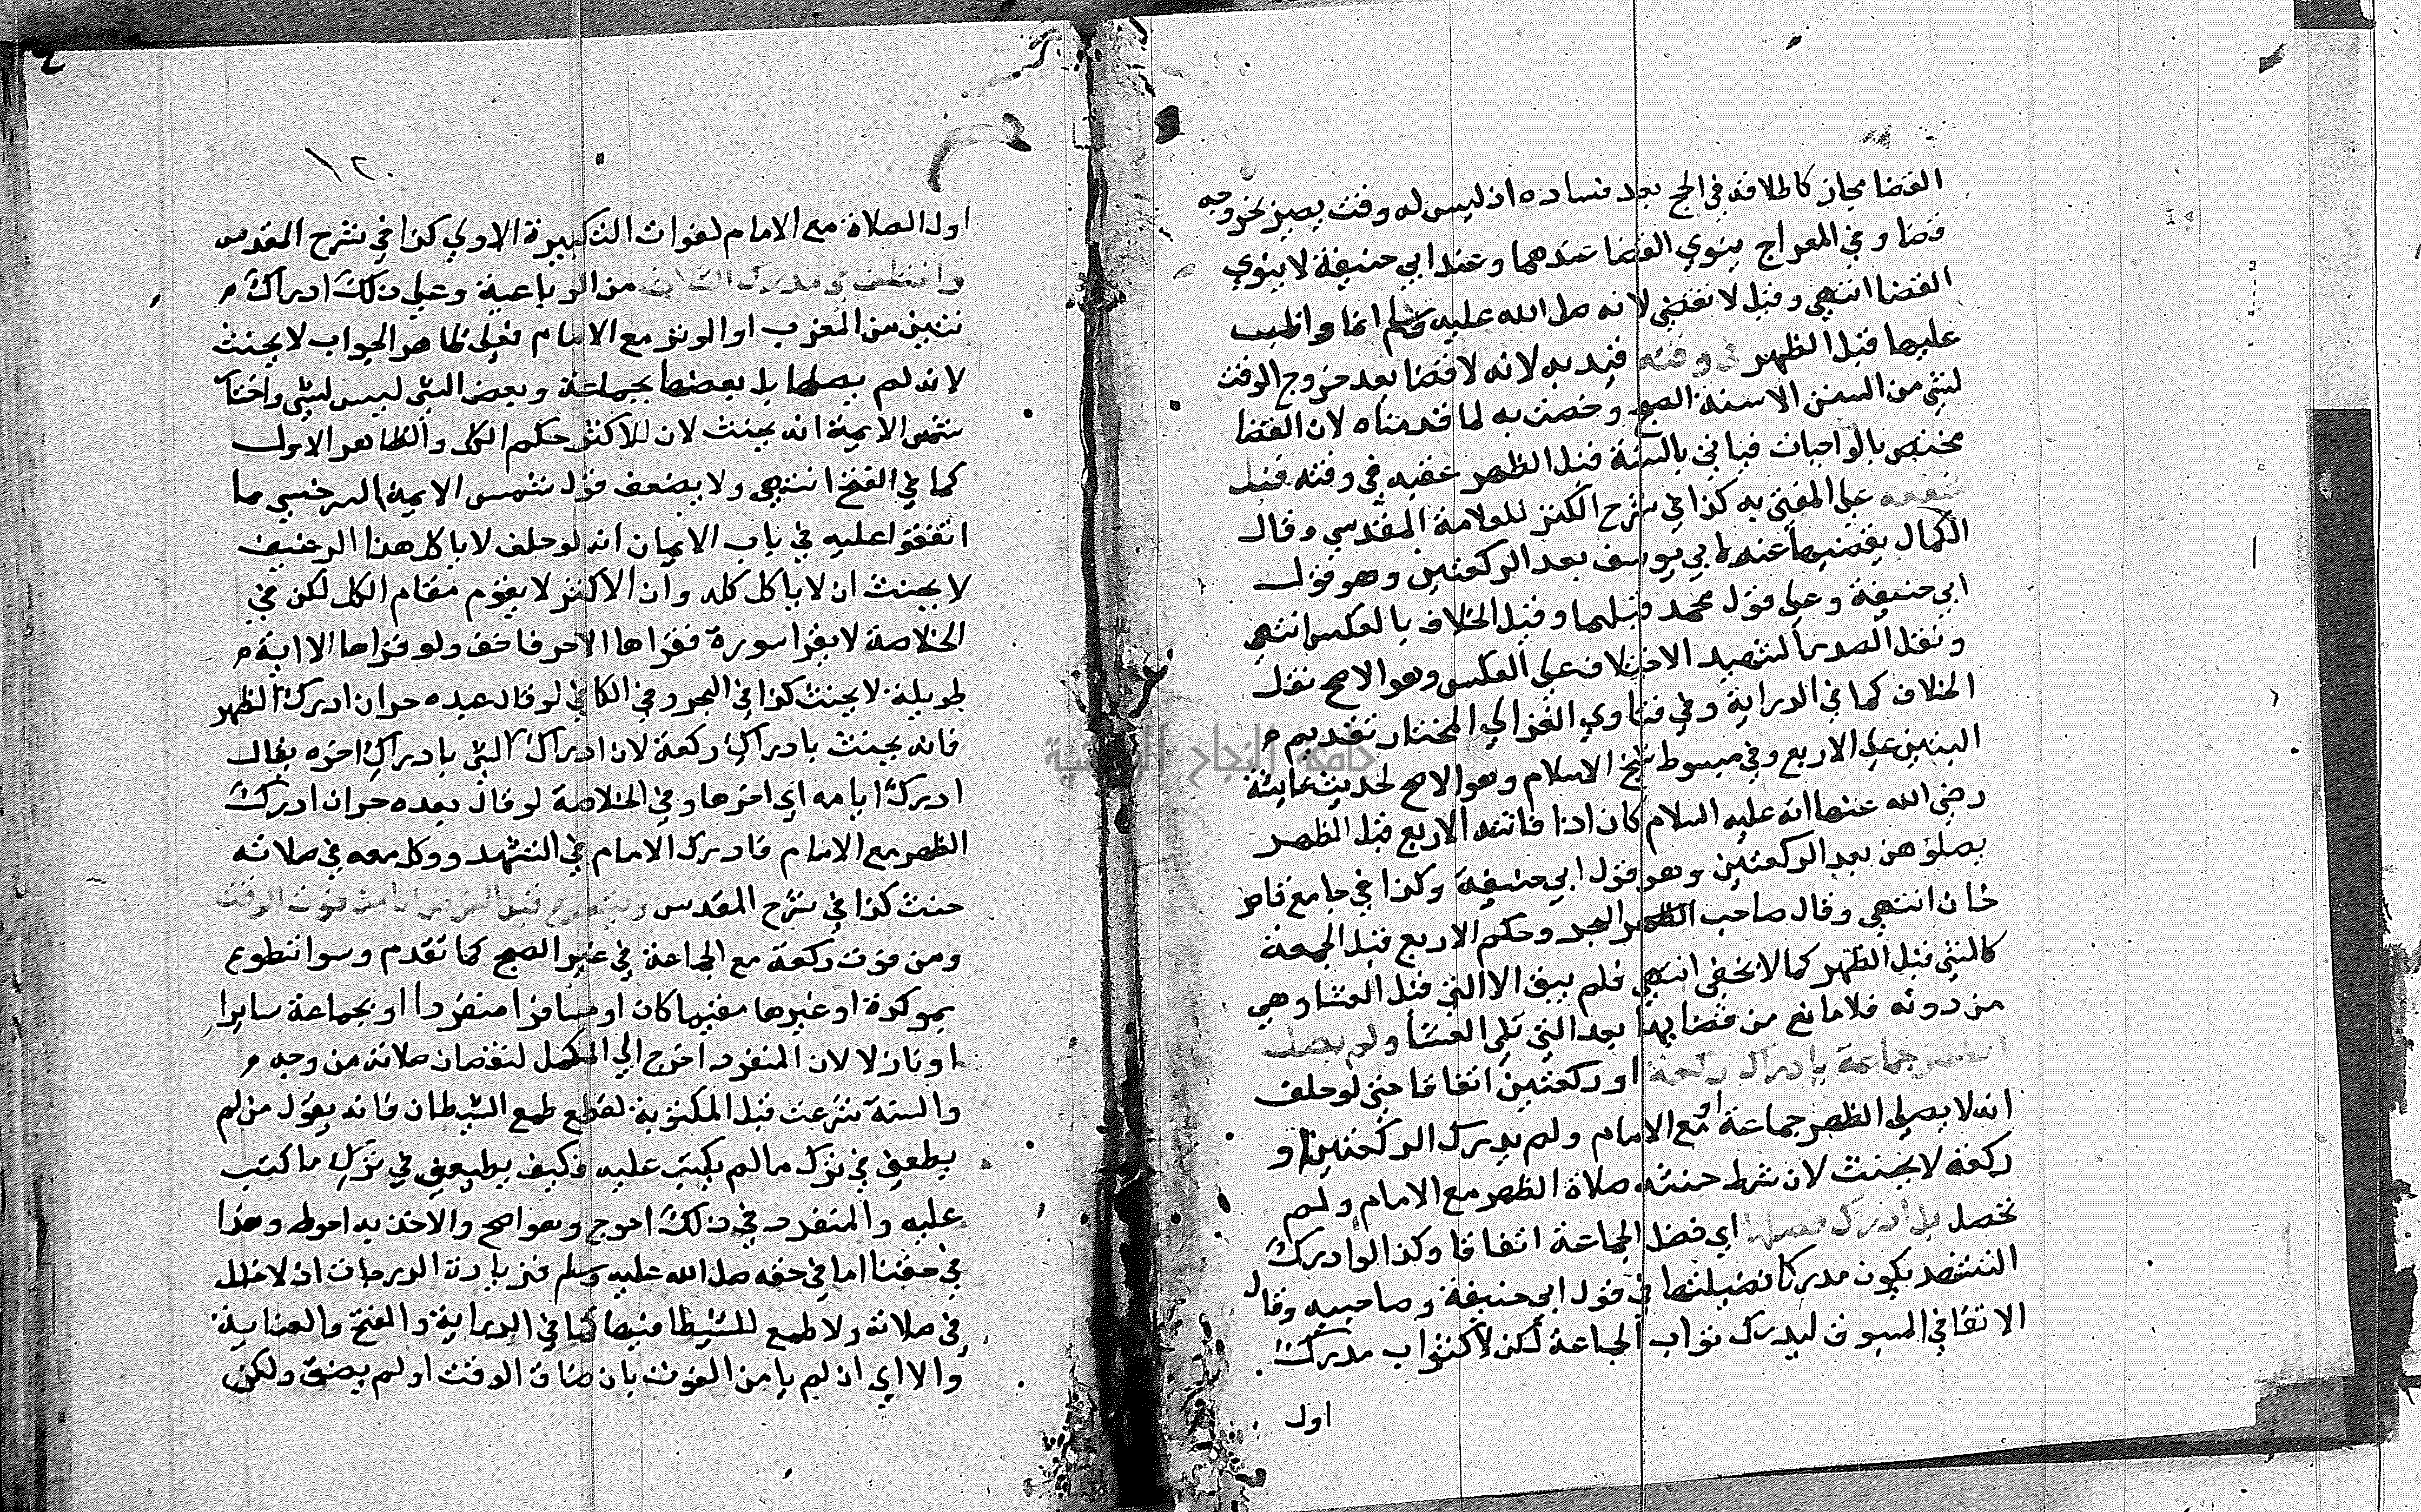 القضا مجاز كاطلاقه في الحج بعد فساده اذ ليس له وقت يصير بخروجه
قضا وفي المعراج ينوي القضا عندهما وعند ابي حنيفة لا ينوي
القضا انتهي وقيل لا تقضي لانه صلى الله عليه وسلم انما واظب
عليها قبل الظهر في وقته قيد به لانه لا قضا بعد خروج الوقت
لشي من السنن الا سنة الصبح وخصت به لما قدمناه لان القضا
مختص بالواجبات فياتي بالسنة قبل الظهر عقبه في وقته قبل
شفعه على المفتي به كذا في شرح الكنز للعلامة المقدسي وقال
الكمال يقضيها عند ابي يوسف بعد الركعتين وهو قول
ابي حنيفة وعلى قول محمد قبلهما وقيل الخلاف بالعكس انتهي
ونقل الصدر الشهيد الاختلاف على العكس وهو الاصح نقل
الخلاف كما في الدراية وفي فتاوي الغزالي المختار تقديم م
الثنتين على الاربع وفي مبسوط شيخ الاسلام وهو الاصح لحديث عايشة
رضي الله عنها انه عليه السلام كان اذا فاتته الاربع قبل الظهر
يصلوهن بعد الركعتين وهو قول ابي حنيفة وكذا في جامع قاضي
خان انتهي وقال صاحب البحر وحكم الاربع قبل الجمعة
كالتي قبل الظهر كما لا يخفى انتهي فلم يبق الا التي قبل العشا وهي
مندوبه فلا مانع من قضايها بعد التي تلي العشا ولم يصل
الظهر جماعة بادراك ركعة او ركعتين اتفاقا حتى لو حلف
انه لا يصلي الظهر جماعة او مع الامام ولم يدرك الركعتين او
ركعة لا يحنث لان شرط حنثه صلاة الظهر مع الامام ولم
تحصل بل ادرك فضلها اي فضل الجماعة اتفاقا وكذا لو ادرك
التشهد يكون مدركا فضيلتها في قول ابي حنيفة وصاحبيه وقال
الاتقاني المسبوق ليدرك ثواب الجماعة لكن لا كثواب مدرك
اول
١٢٠
اول الصلاة مع الامام لفوات التكبيرة الاولي كذا في شرح المقدسي
واختلف في مدرك الثلاث من الرباعية وعلى ذلك ادراك م
ثنتين من المغرب او الوتر مع الامام فعلى ظاهر الجواب لا يحنث
لانه لم يصلها بل بعضها بجماعة وبعض الشي ليس لشي واختار
شمس الايمة انه يحنث لان للاكثر حكم الكل والظاهر الاول
كما في الفتح انتهي ولا يضعف قول شمس الايمة السرخسي ما
اتفقوا عليه في باب الايمان انه لو حلف لا ياكل هذا الرغيف
لا يحنث ان لا ياكل كله وان الاكثر لا يقوم مقام الكل لكن في
الخلاصة لا يقرا سورة فقراها الا حرفا حنث ولو قراها الا اية م
طويلة لا يحنث كذا في البحر وفي الكافي لو قال عبده حر ان ادرك الظهر
فانه يحنث بادراك ركعة لان ادراك الشي بادراك اخره يقال
ادرك ايامه اي اخرها وفي الخلاصة لو قال بعده حر ان ادرك
الظهر مع الامام فادرك الامام في التشهد ودخل معه في صلاته
حنث كذا في شرح المقدسي ويتطوع قبل الفرض ان امن فوت الوقت
ومن فوت ركعة مع الجماعة في غير الصبح كما تقدم وسوا تطوع
بموكدة او غيرها مقيما كان او مسافرا منفردا او بجماعة سايرا
او نازلا لان المنفرد احوج الي المكمل لنقصان صلاته من وجه م
والسنة شرعت قبل المكتوبة لقطع طمع الشيطان فانه يقول من لم
يطعني في ترك ما لم يكتب عليه فكيف يطيعني في ترك ما كتب
عليه والمنفرد في ذلك احوج وهو اصح والاخذ به احوط وهذا
في حقنا اما في حقه صلى الله عليه وسلم فزيادة الدرجات اذ لا خلل
في صلاته ولا طمع للشيطان فيها كما في الدراية والفتح والعناية
والا اي ان لم يامن الفوت بان ضاق الوقت او لم يضق ولكن